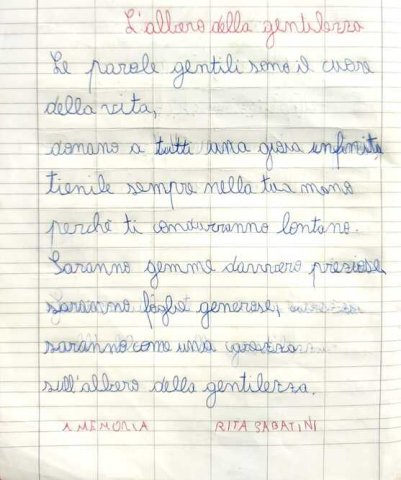 L'albero della gentilezza
Le parole gentili sono il cuore
della vita,
donano a tutti una gioia infinita
tienile sempre nella tua mano
perché ti condurranno lontano.
Saranno gemme davvero preziose,
saranno foglie generose,
saranno come una
sull'albero della gentilezza.
A MEMORIA RITA SABATINI